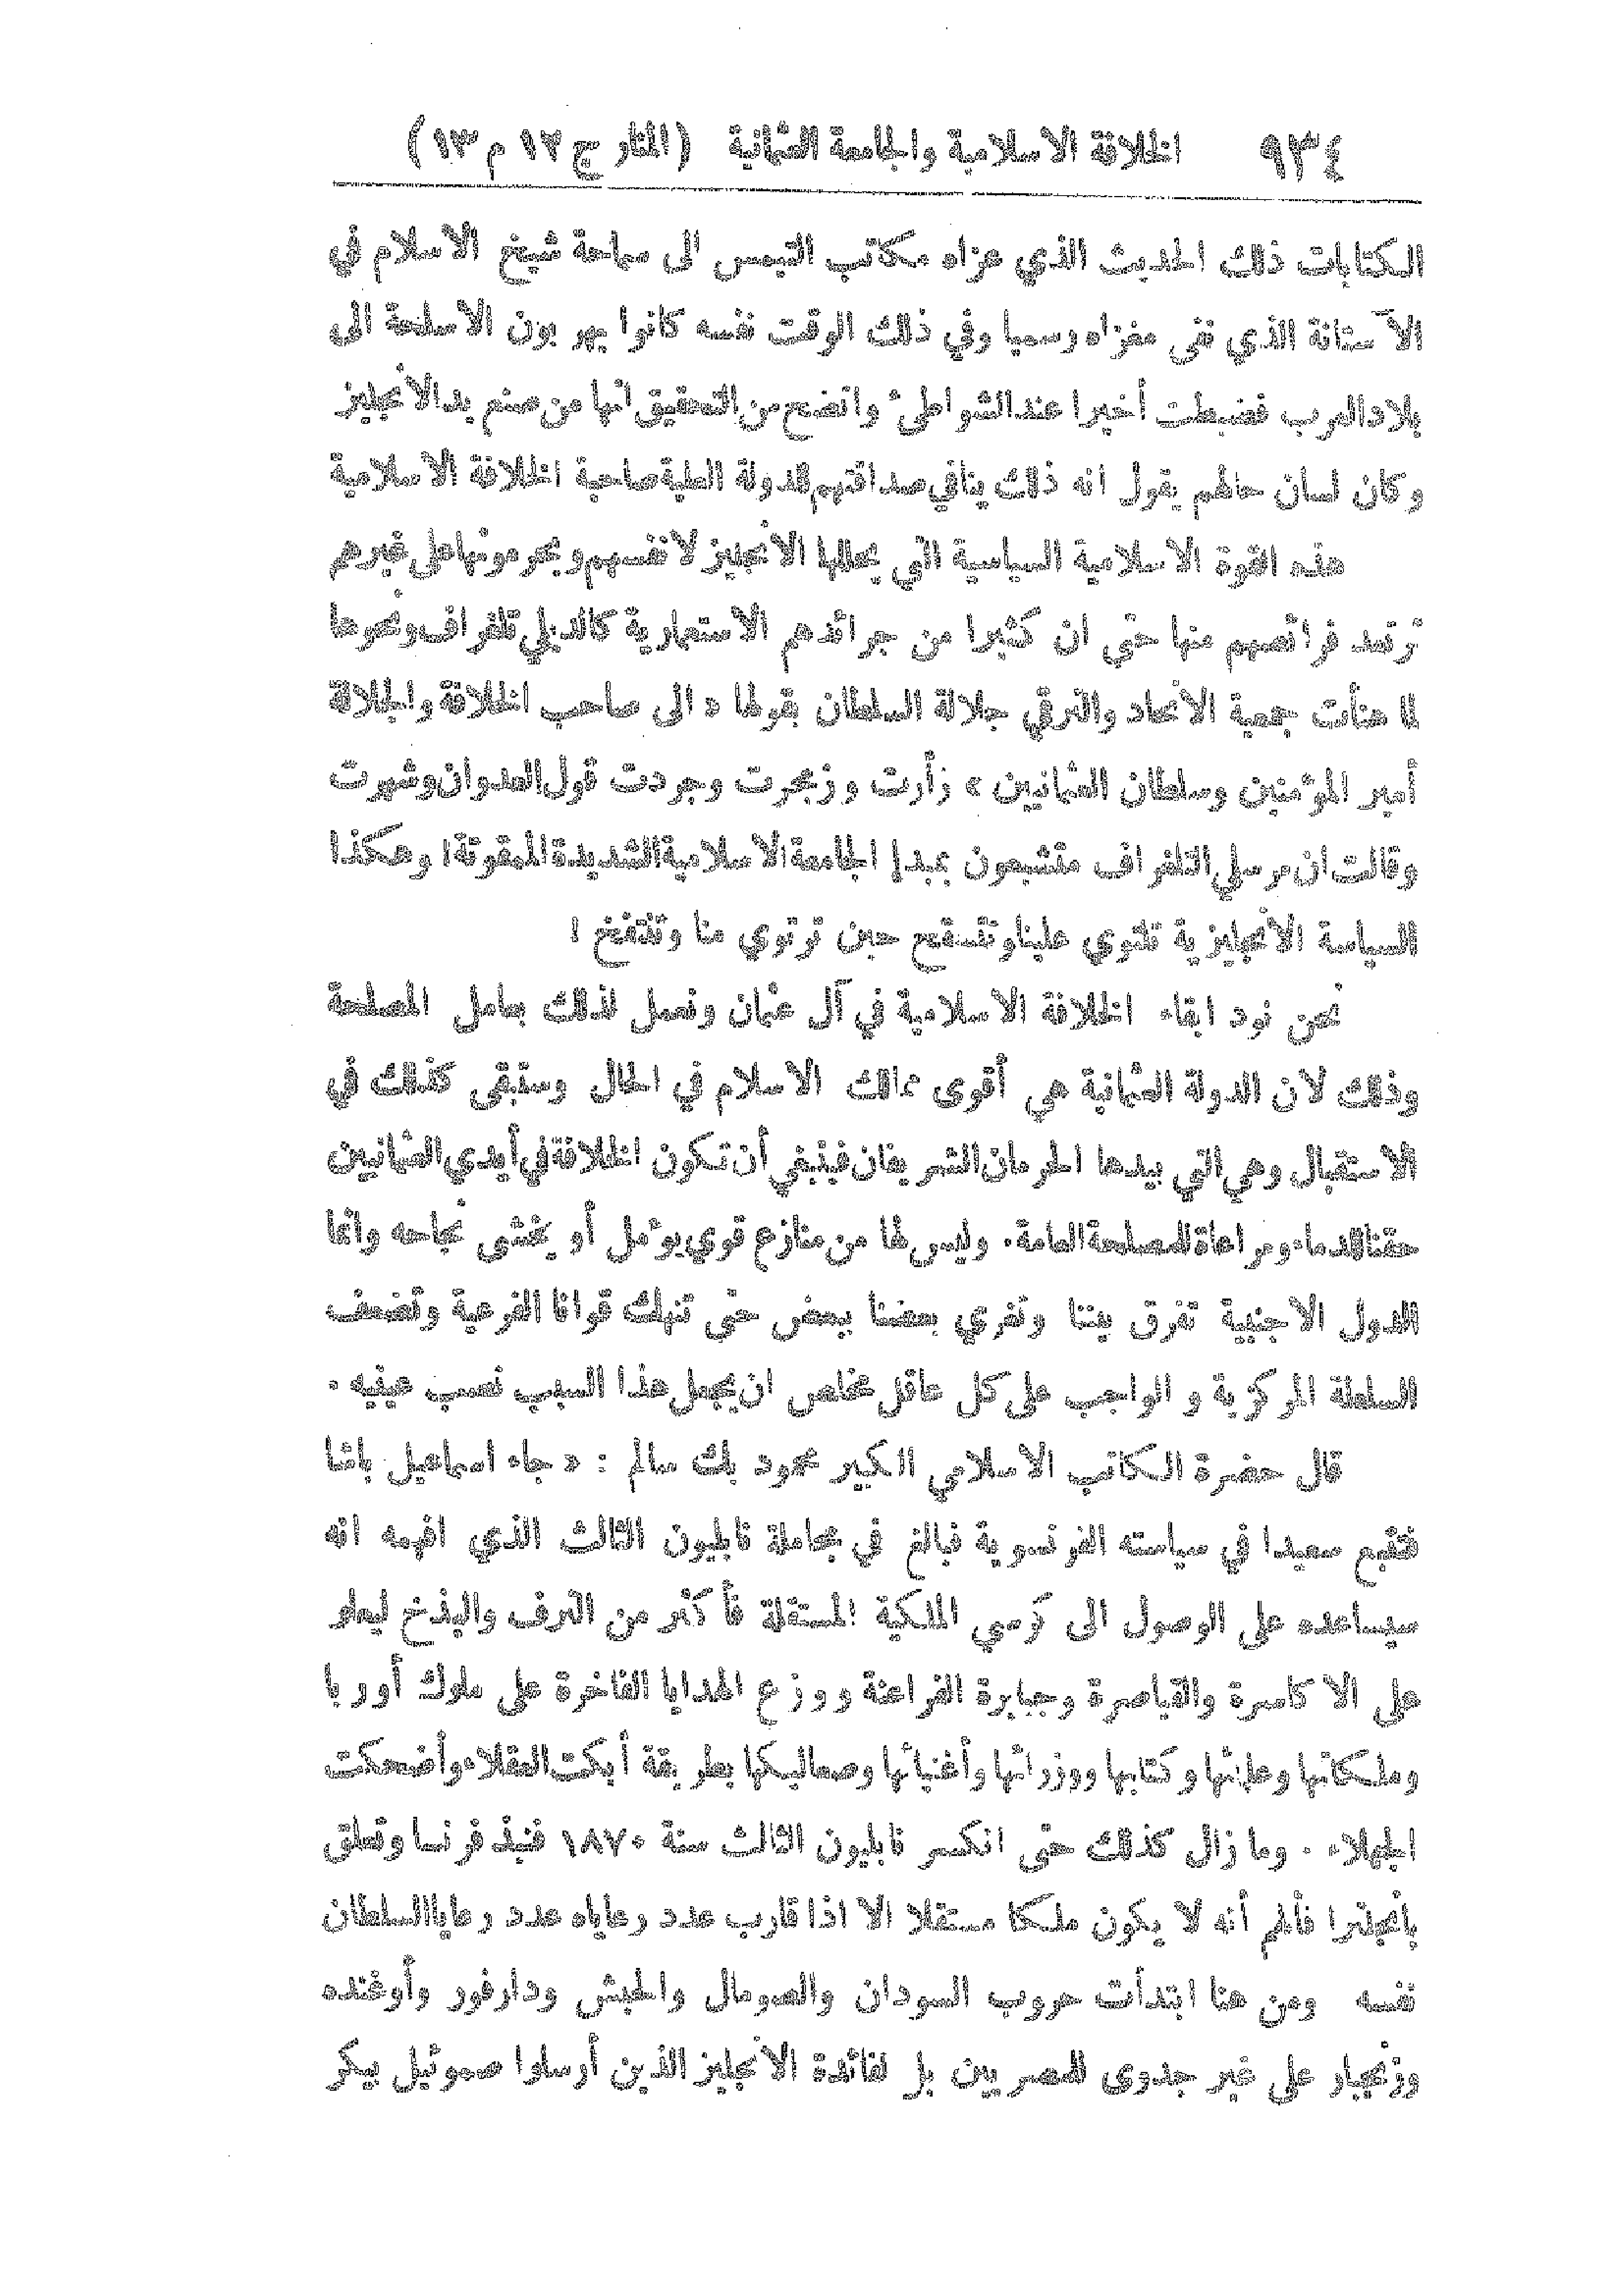 ٩٣٤ الخلافة الاسلامية والجامعة العثمانية (المنار ج ١٢ م ١٣)
الكتابات ذلك الحديث الذي عزاه مكاتب التيمس الى سماحة شيخ الاسلام في
الآستانة الذي نفى مغزاه رسميا وفي ذلك الوقت نفسه كانوا يهربون الاسلحة الى
بلاد العرب فضبطت أخيرا عند الشواطئ واتضح من التحقيق انها من صنع يد الانجليز
وكان لسان حالهم يقول انه ذلك ينافي صداقتهم للدولة العلية صاحبة الخلافة الاسلامية
هذه القوة الاسلامية السياسية التي يحللها الانجليز لانفسهم ويحرمونها على غيرهم
ترتعد فرائصهم منها حتى ان كثيرا من جرائدهم الاستعمارية كالديلي تلغراف ونحوها
لما هنأت جمعية الاتحاد والترقي جلالة السلطان بقولها « الى صاحب الخلافة والجلالة
أمير المؤمنين وسلطان العثمانيين » زأرت وزمجرت وجردت قول العدوان وشهرت
وقالت ان مرسلي التلغراف متشبعون بمبدإ الجامعة الاسلامية الشديدة الممقوتة! وهكذا
السياسة الانجليزية تلتوي علينا وتتسقح حين ترتوي منا وتنتفخ !
نحن نود ابقاء الخلافة الاسلامية في آل عثمان ونعمل لذلك بعامل المصلحة
وذلك لان الدولة العثمانية هي أقوى ممالك الاسلام في الحال وستبقى كذلك في
الاستقبال وهي التي بيدها الحرمان الشريفان فينبغي أن تكون الخلافة في أيدي العثمانيين
حقنا للدماء ومراعاة للمصلحة العامة . وليس لها من منازع قوي يؤمل أو يخشى نجاحه وانما
الدول الاجنبية تفرق بيننا وتغري بعضنا ببعض حتى تنهك قوانا الفرعية وتضعف
السلطة المركزية و الواجب على كل عاقل مخلص ان يجعل هذا السبب نصب عينيه .
قال حضرة الكاتب الاسلامي الكبير محمود بك سالم : « جاء اسماعيل باشا
فتتبع سعيدا في سياسته الفرنسوية فبالغ في مجاملة نابليون الثالث الذي افهمه انه
سيساعده على الوصول الى كرسي الملكية المستقلة فأكثر من الترف والبذخ ليعلو
على الاكاسرة والقياصرة وجبابرة الفراعنة ووزع الهدايا الفاخرة على ملوك أوربا
وملكاتها وعلمائها وكتابها ووزرائها وأغنيائها وصعاليكها بطريقة أبكت العقلاء وأضحكت
الجهلاء . وما زال كذلك حتى انكسر نابليون الثالث سنة ١٨٧٠ فنبذ فرنسا وتعلق
بانجلترا فألهم أنه لا يكون ملكا مستقلا الا اذا قارب عدد رعاياه عدد رعايا السلطان
نفسه ومن هنا ابتدأت حروب السودان والصومال والحبش ودارفور وأوغنده
وزنجبار على غير جدوى للمصريين بل لفائدة الانجليز الذين أرسلوا صموئيل بيكر